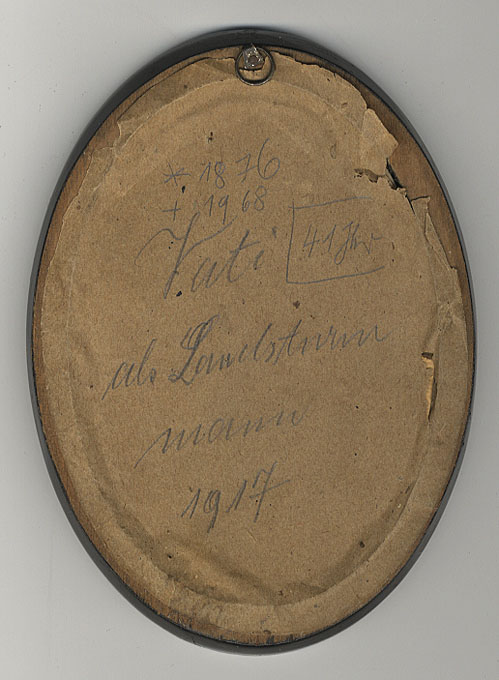 * 1876
+ 1968
Vati 41 Jhr
als Landsturm
mann
1917